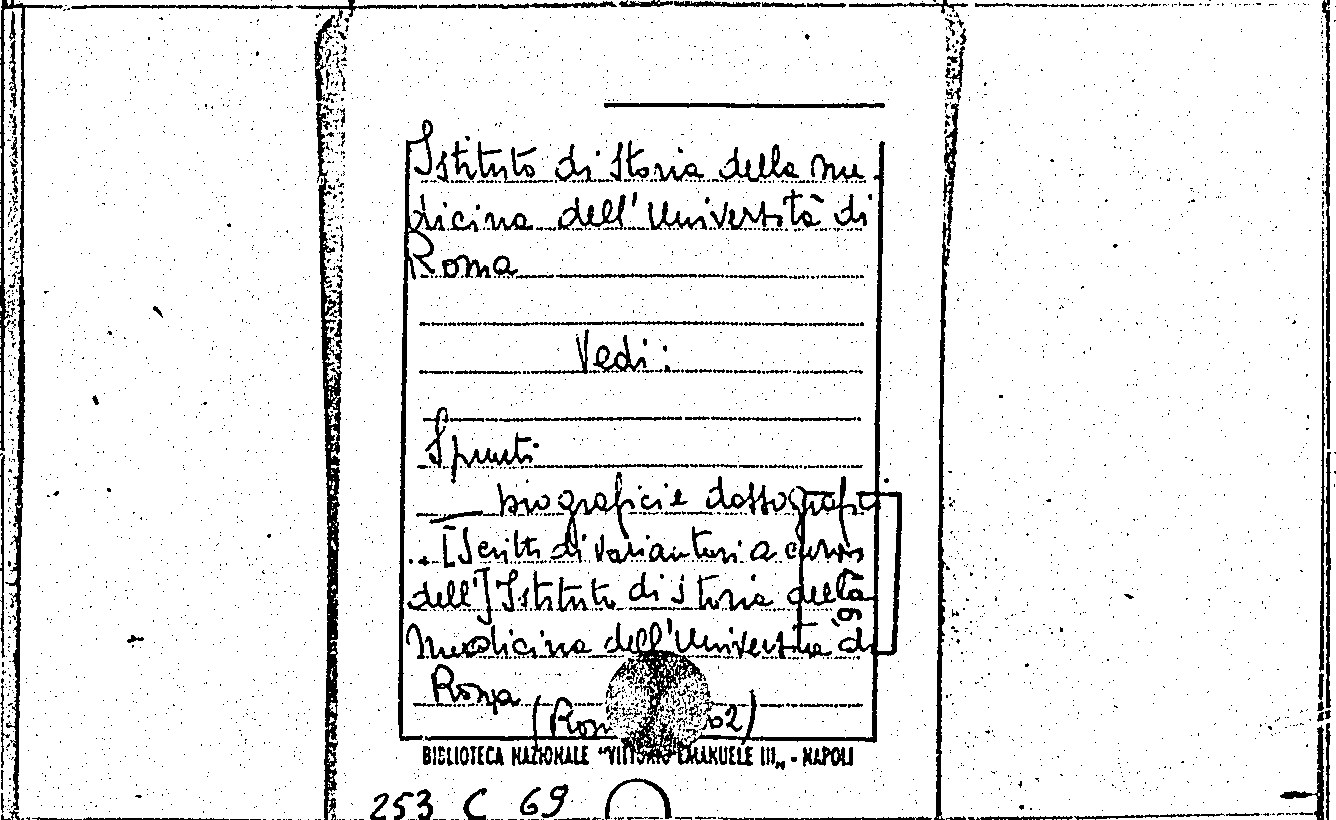 Istituto di Storia della me-
dicina dell'Università di
Roma
Vedi:
Spunti
biografici e dossografici
... [Scritti di vari autori a cura
dell'] Istituto di storia della
Medicina dell'Università di
Roma
(Rom 62)
BIBLIOTECA NAZIONALE "VITTORIO EMANUELE III" - NAPOLI
253 C 69